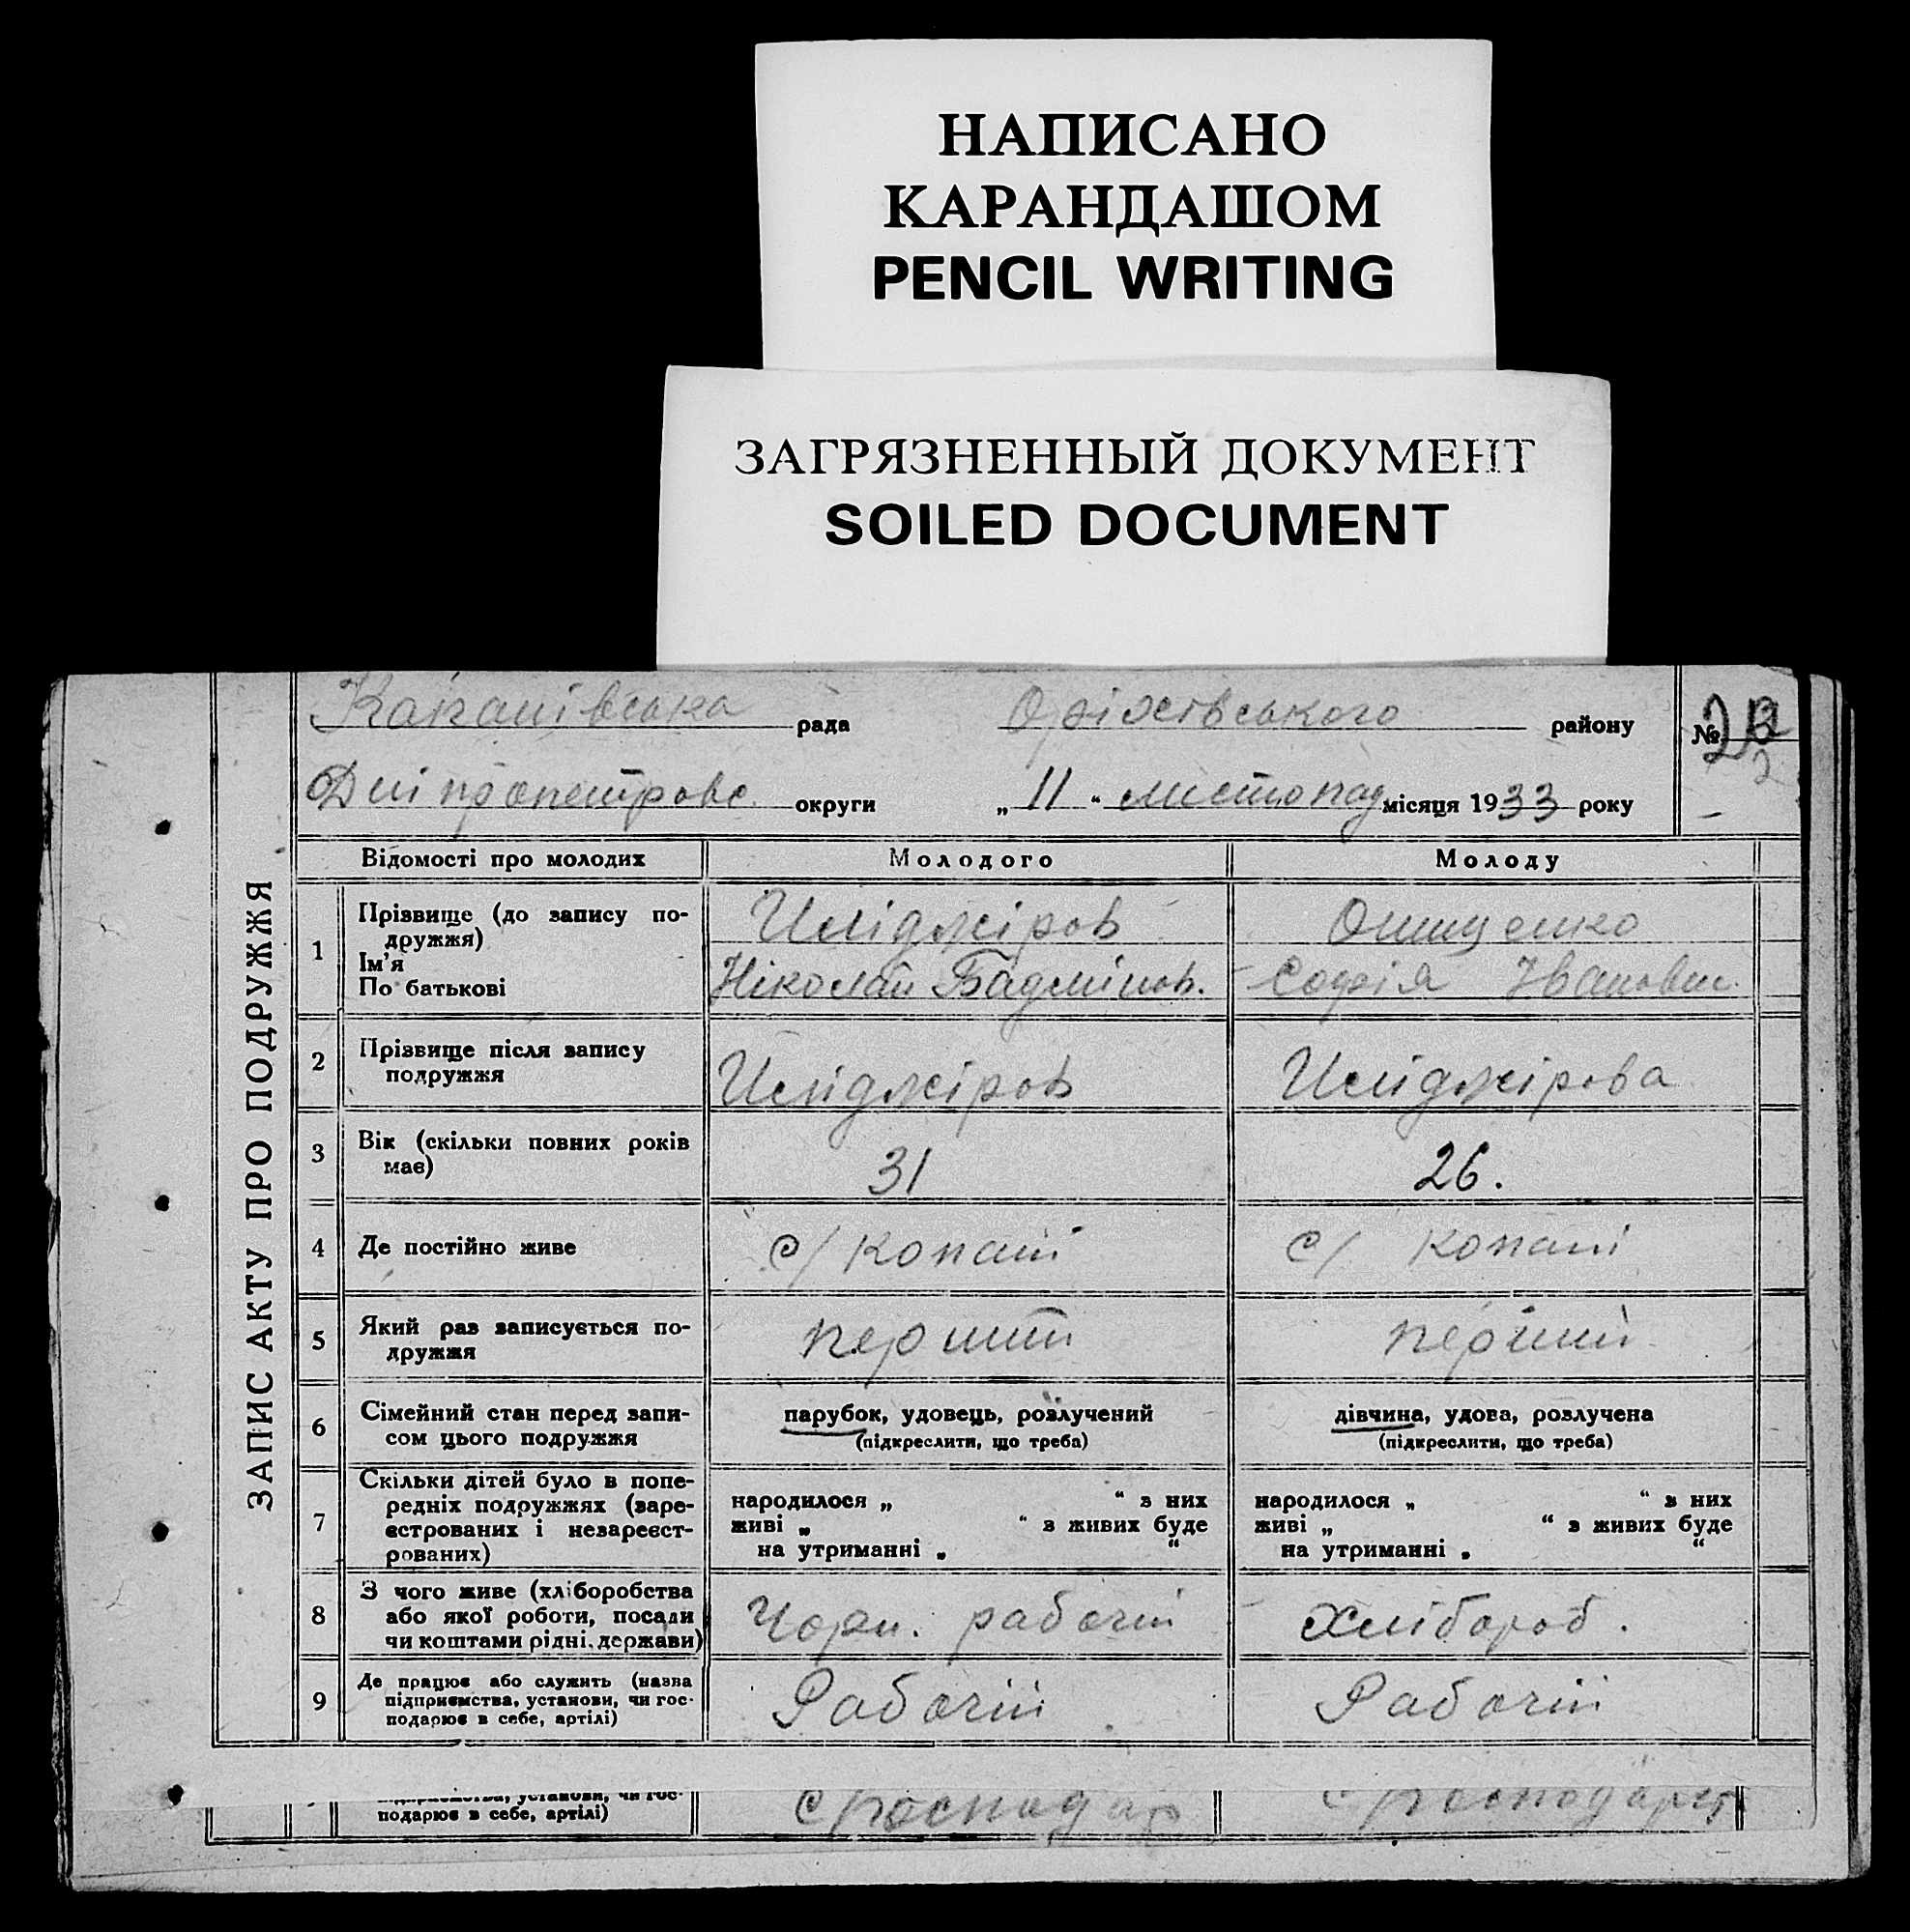 НАПИСАНО
КАРАНДАШОМ
PENCIL WRITING
ЗАГРЯЗНЕННЫЙ ДОКУМЕНТ
SOILED DOCUMENT
ЗАПИС АКТУ ПРО ПОДРУЖЖЯ
Копанівська рада Оріхівського району №
Дніпропетровс. округи „ 11 “ листопад місяця 1933 року
Відомості про молодих Молодого Молоду
1 Прізвище (до запису по-
дружжя) Иліджіров Онищенко
Ім'я
По батькові Ніколай Бадмінов. Софія Ивановн.
2 Прізвище після запису
подружжя Иліджіров Иліджірова
3 Вік (скільки повних років
має) 31 26.
4 Де постійно живе с/ Копані с/ Копані
5 Який раз записується по-
дружжя перший перший
6 Сімейний стан перед запи-
сом цього подружжя
парубок, удовець, розлучений дівчина, удова, розлучена
(підкреслити, що треба) (підкреслити, що треба)
7 Скільки дітей було в попе-
редніх подружжях (заре-
єстрованих і незареєст-
рованих)
народилося „ “ з них народилося „ “ з них
живі „ “ з живих буде живі „ “ з живих буде
на утриманні „ “ на утриманні „ “
8 З чого живе (хліборобства
або якої роботи, посади
чи коштами рідні, держави) Чорн. рабочій Хлібороб.
9 Де працює або служить (назва
підприємства, установи, чи гос-
подарює в себе, артілі) Рабочій Рабочій
підприємства, установи, чи гос-
подарює в себе, артілі)